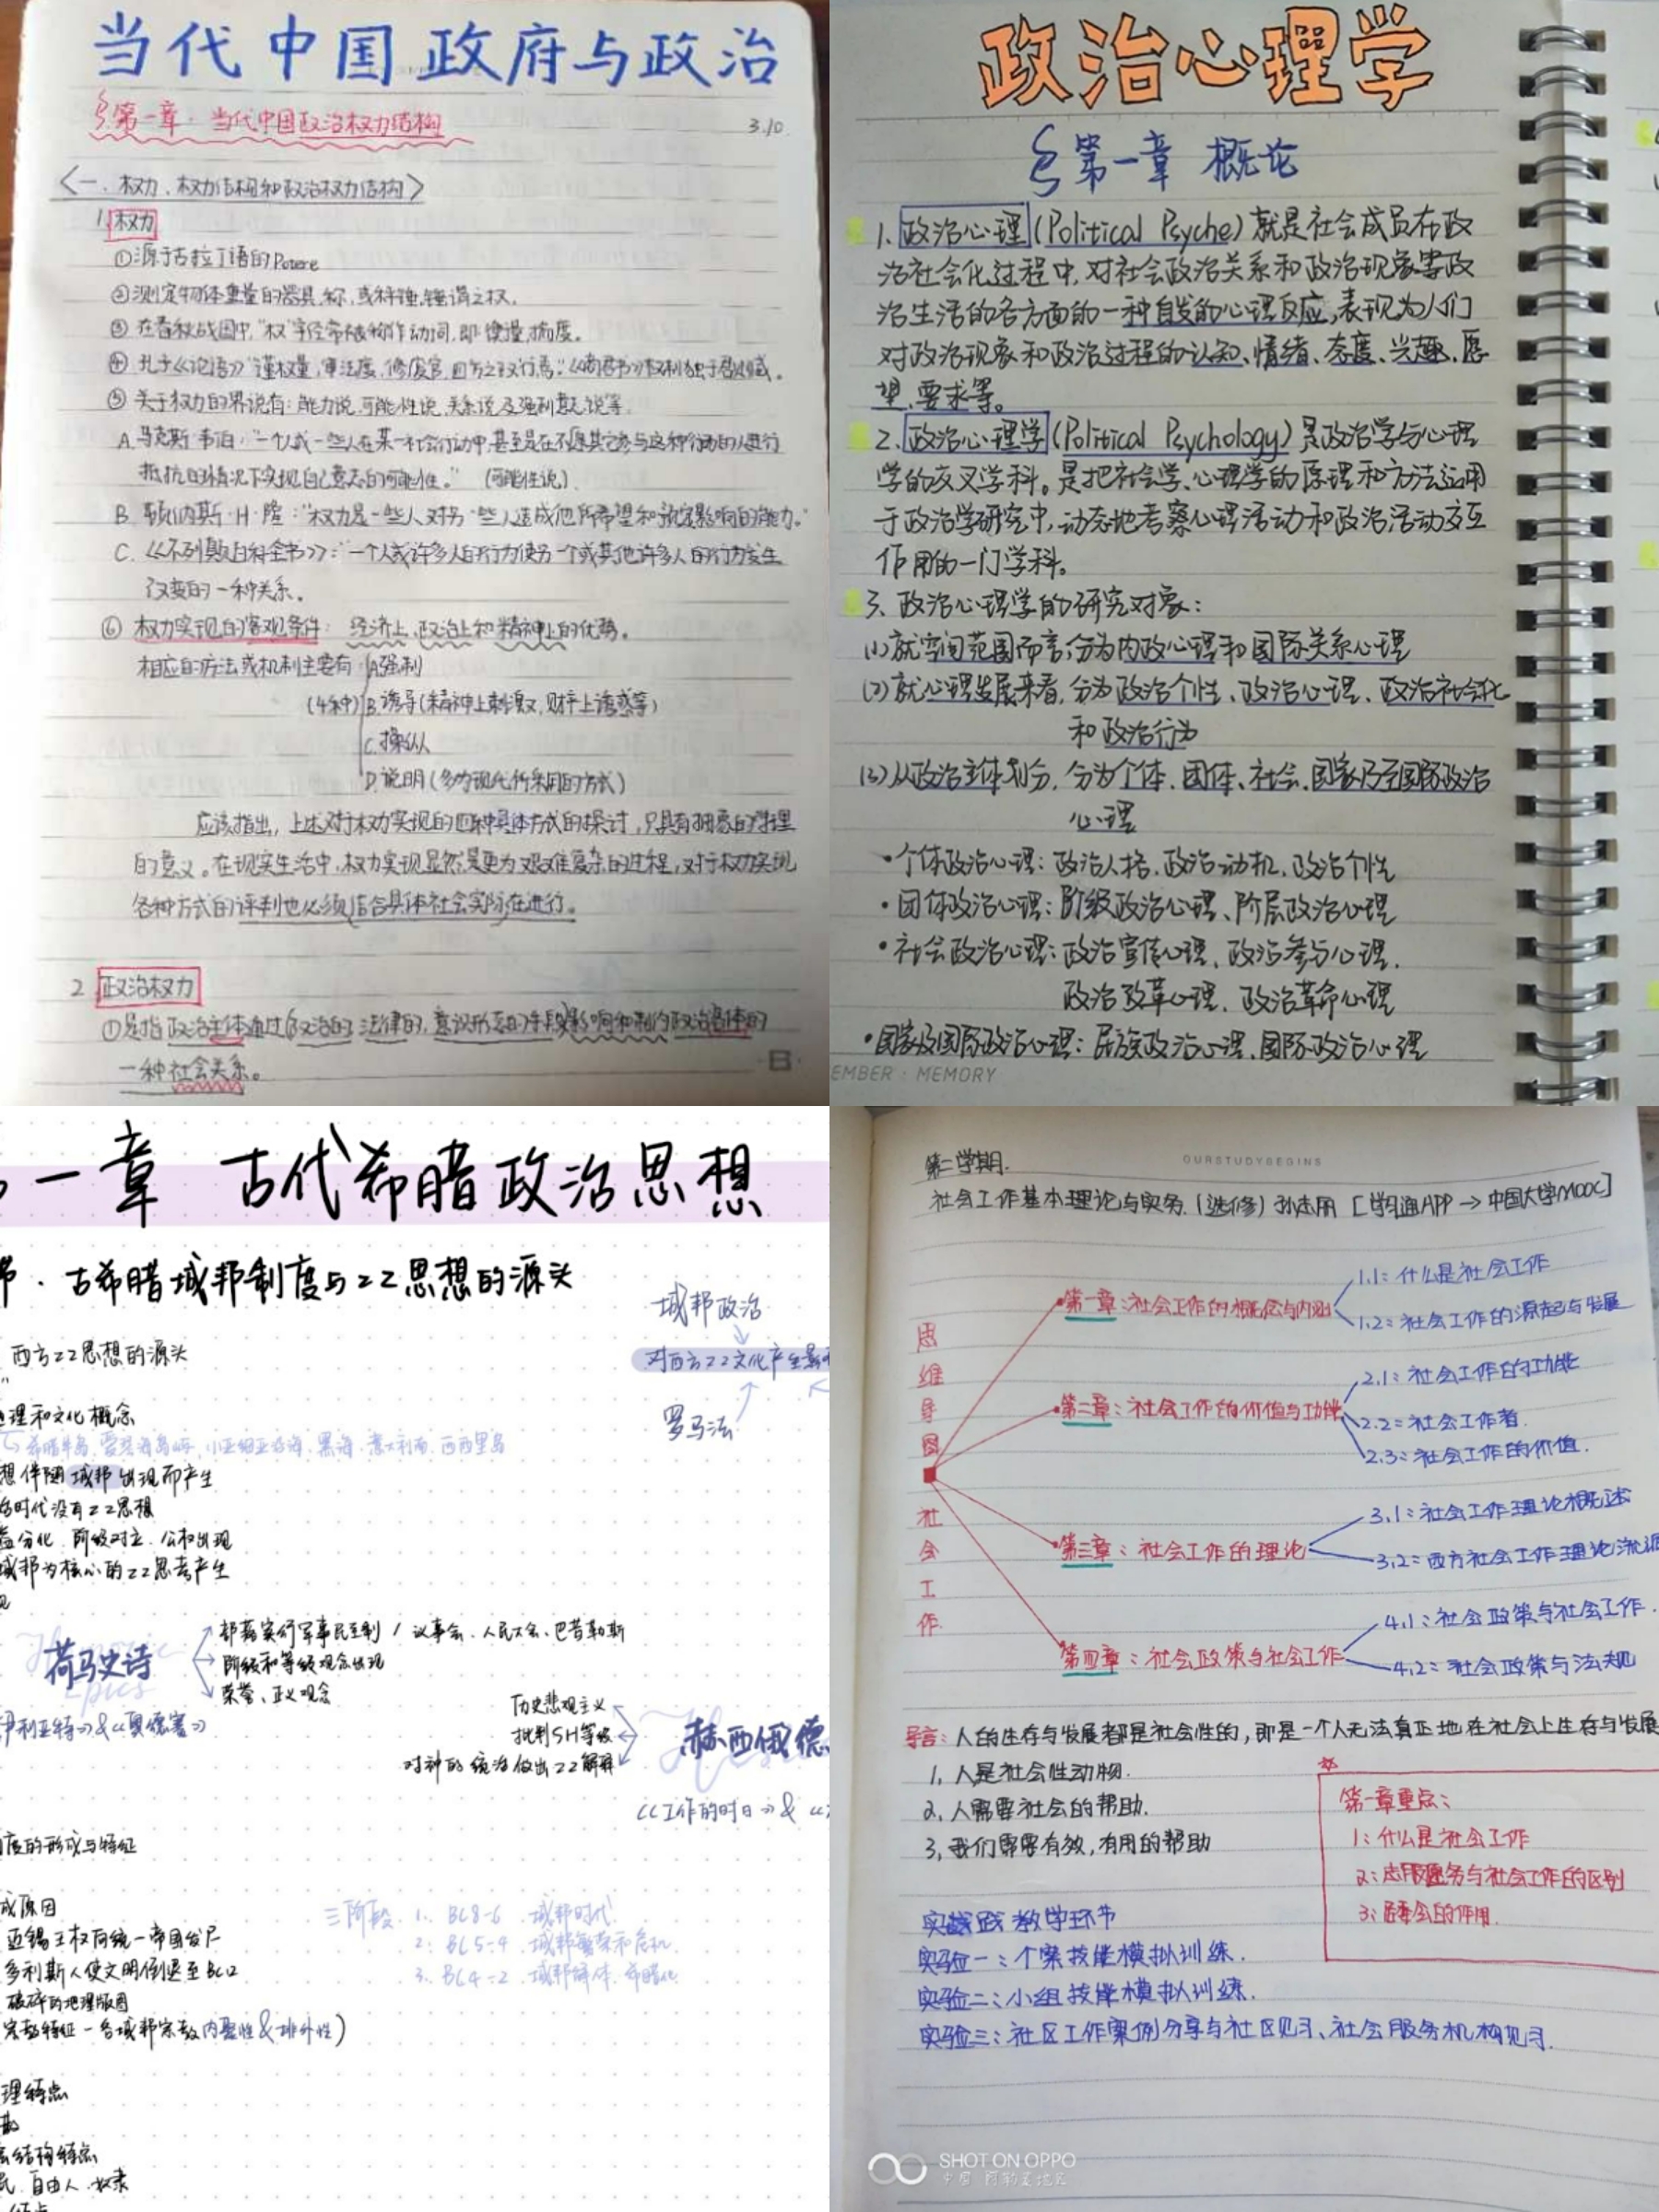 当代中国政府与政治
第一章·当代中国政治权力结构
3.10
<一、权力、权力结构和政治权力结构>
1.权力
①源于古拉丁语的Potere
②测定物体重量的器具,称,或秤锤,锤谓之权。
③在春秋战国中,“权”字经常被称作动词,即衡量,揣度。
④孔子《论语》“谨权量,审法度,修废官,四方之政行焉。”
⑤关于权力的界说有:能力说、可能性说、关系说及强制意志说等。
A.马克斯·韦伯:“一个人或一些人在某一社会行动中,甚至是在不顾其它参与这种行动的人进行
抵抗的情况下实现自己意志的可能性。”(可能性说)
B.朗:“权力是一些人对另一些人造成他所希望和预定影响的能力。”
C.《不列颠百科全书》:“一个人或许多人的行为使另一个或其他许多人的行为发生
改变的一种关系。
⑥权力实现的客观条件:经济上、政治上和精神上的优势。
相应的方法或机制主要有:A.强制
(4种) B.诱导(精神上刺激,财产上诱惑等)
C.操纵
D.说明(多为现代所采用的方式)
应该指出,上述对于权力实现的四种具体方式的探讨,只具有抽象的学理
的意义。在现实生活中,权力实现显然是更为艰难复杂的过程,对于权力实现
各种方式的评判也必须结合具体社会实际在进行。
2 政治权力
①是指政治主体通过政治的、法律的、意识形态的手段影响和制约政治客体的
一种社会关系。
政治心理学
第一章 概论
1.政治心理(Political Psyche)就是社会成员在政
治社会化过程中,对社会政治关系和政治现象等政
治生活的各方面的一种自发的心理反应,表现为人们
对政治现象和政治过程的认知、情绪、态度、兴趣、愿
望、要求等。
2.政治心理学(Political Psychology)是政治学与心理
学的交叉学科。是把社会学、心理学的原理和方法运用
于政治学研究中,动态地考察心理活动和政治活动交互
作用的一门学科。
3、政治心理学的研究对象:
(1)就空间范围而言,分为内政心理和国际关系心理
(2)就心理发展来看,分为政治个性、政治心理、政治社会化
和政治行为
(3)从政治主体划分,分为个体、团体、社会、国家乃至国际政治
心理
·个体政治心理:政治人格、政治动机、政治个性
·团体政治心理:阶级政治心理、阶层政治心理
·社会政治心理:政治宣传心理、政治参与心理、
政治改革心理、政治革命心理
·国家及国际政治心理:民族政治心理、国际政治心理
EMBER · MEMORY
一章 古代希腊政治思想
节·古希腊城邦制度与ZZ思想的源头
西方ZZ思想的源头
城邦政治
对西方ZZ文化产生影
罗马法
理和文化概念
希腊半岛、爱琴海岛屿、小亚细亚沿海、黑海、意大利南、西西里岛
想伴随城邦出现而产生
时代没有ZZ思想
益分化、阶级对立、公权出现
城邦为核心的ZZ思考产生
荷马史诗
部落实行军事民主制/议事会、人民大会、巴昔勒斯
阶级和等级观念出现
荣誉、正义观念
伊利亚特》&《奥德赛》
历史悲观主义
批判SH等级
对神的统治做出ZZ解释
赫西俄德
《工作的时日》&《
度的形成与特征
成原因
迈锡王权向统一帝国发尸
多利斯人使文明倒退至BC12
破碎的地理版图
宗教特征-各城邦宗教内聚性&排外性)
三阶段 1. BC8-6 城邦时代
2. BC5-4 城邦繁荣和危机
3. BC4-2 城邦解体、希腊化
理特点
结构特点
民、自由人、奴隶
第二学期.
OURSTUDYBEGINS
社会工作基本理论与实务.(选修)孙志丽 [学习通APP→中国大学MOOC]
思维导图 社会工作
第一章:社会工作的概念与内涵
1.1:什么是社会工作
1.2:社会工作的源起与发展
第二章:社会工作的价值与功能
2.1:社会工作的功能
2.2:社会工作者.
2.3:社会工作的价值.
第三章:社会工作的理论
3.1:社会工作理论概述
3.2:西方社会工作理论流派
第四章:社会政策与社会工作
4.1:社会政策与社会工作.
4.2:社会政策与法规
导言:人的生存与发展都是社会性的,即是一个人无法真正地在社会上生存与发展
1.人是社会性动物.
2.人需要社会的帮助.
3.我们需要有效,有用的帮助
第一章重点:
1:什么是社会工作
2:志愿服务与社会工作的区别
3:居委会的作用.
实践教学环节
实验一:个案技能模拟训练.
实验二:小组技能模拟训练.
实验三:社区工作案例分享与社区见习、社会服务机构见习.
SHOT ON OPPO
中国·阿勒泰地区